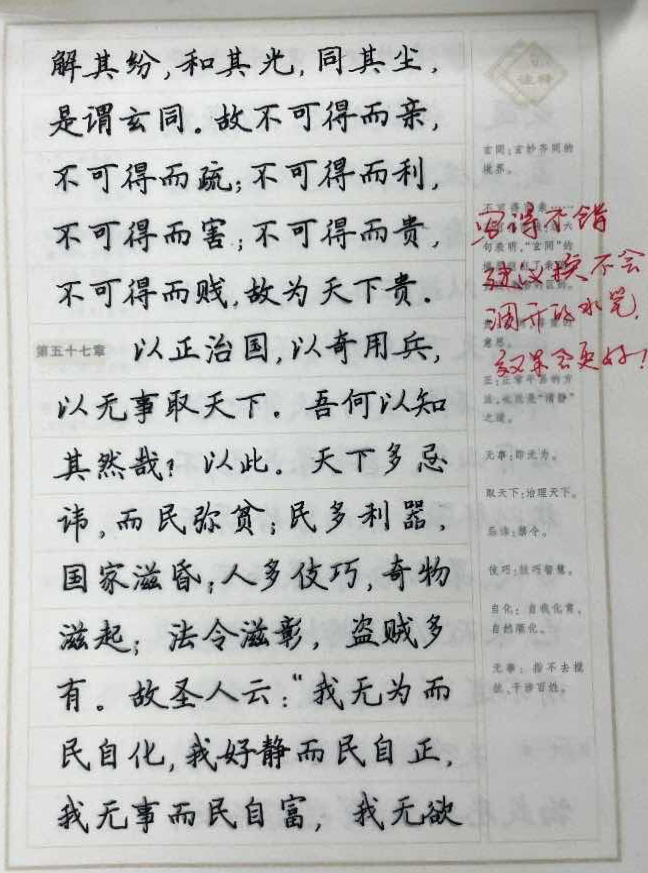 解其纷,和其光,同其尘,
是谓玄同。故不可得而亲,
不可得而疏;不可得而利,
不可得而害;不可得而贵,
不可得而贱,故为天下贵。
第五十七章 以正治国,以奇用兵,
以无事取天下。吾何以知
其然哉?以此。天下多忌
讳,而民弥贫;民多利器,
国家滋昏;人多伎巧,奇物
滋起;法令滋彰,盗贼多
有。故圣人云:“我无为而
民自化,我好静而民自正,
我无事而民自富,我无欲
注释
玄同:玄妙齐同的
境界。
写得不错
建议换不会
洇开的水笔,
效果会更好!
句表明,“玄同”的
无事:即无为。
取天下:治理天下。
忌讳:禁令。
伎巧:技巧智慧。
自化:自我化育,
无事:指不去搅
扰、干涉百姓。